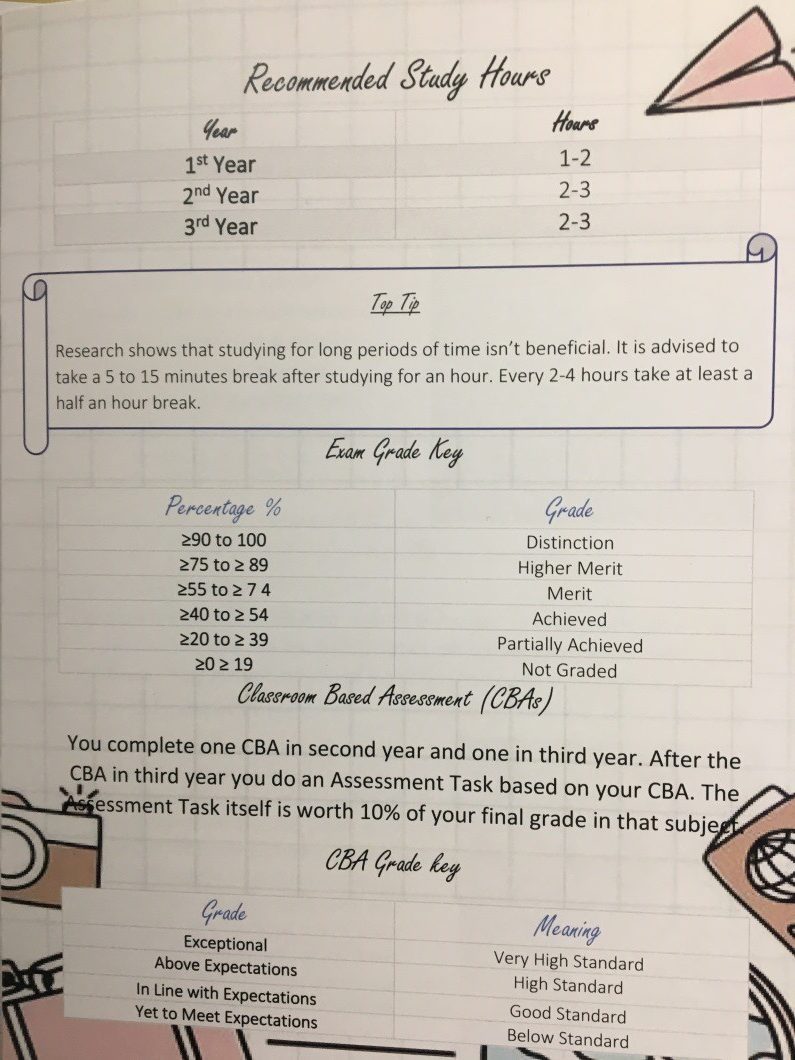 Recommended Study Hours
Year Hours
1st Year 1-2
2nd Year 2-3
3rd Year 2-3
Top Tip
Research shows that studying for long periods of time isn't beneficial. It is advised to
take a 5 to 15 minutes break after studying for an hour. Every 2-4 hours take at least a
half an hour break.
Exam Grade Key
Percentage % Grade
≥90 to 100 Distinction
≥75 to ≥ 89 Higher Merit
≥55 to ≥ 7 4 Merit
≥40 to ≥ 54 Achieved
≥20 to ≥ 39 Partially Achieved
≥0 ≥ 19 Not Graded
Classroom Based Assessment (CBAs)
You complete one CBA in second year and one in third year. After the
CBA in third year you do an Assessment Task based on your CBA. The
Assessment Task itself is worth 10% of your final grade in that subject.
CBA Grade key
Grade Meaning
Exceptional Very High Standard
Above Expectations High Standard
In Line with Expectations Good Standard
Yet to Meet Expectations Below Standard